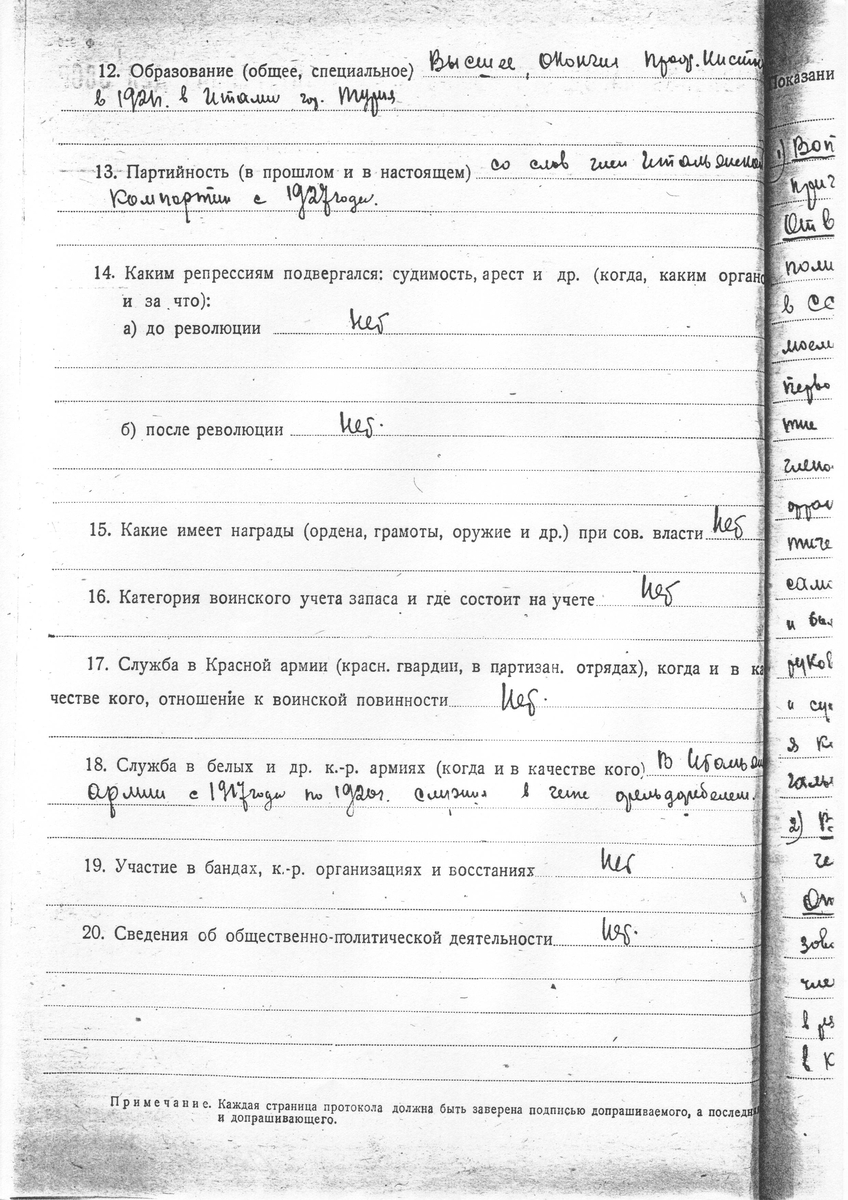 12. Образование (общее, специальное) Высшее, окончил проф. Инсти
в 1921г. в Италии гор. Турин
13. Партийность (в прошлом и в настоящем) со слов член Итальянской
компартии с 1927 года.
14. Каким репрессиям подвергался: судимость, арест и др. (когда, каким органо
и за что):
а) до революции Нет
б) после революции Нет.
15. Какие имеет награды (ордена, грамоты, оружие и др.) при сов. власти Нет
16. Категория воинского учета запаса и где состоит на учете Нет
17. Служба в Красной армии (красн. гвардии, в партизан. отрядах), когда и в ка
честве кого, отношение к воинской повинности Нет.
18. Служба в белых и др. к.-р. армиях (когда и в качестве кого) В Итальян
армии с 1917 года по 1920г. служил в чине фельдфебелем.
19. Участие в бандах, к.-р. организациях и восстаниях Нет
20. Сведения об общественно-политической деятельности Нет.
Примечание. Каждая страница протокола должна быть заверена подписью допрашиваемого, а последн
и допрашивающего.
Показани
1) Воп
прич
Отв
поли
в СС
моем
перво
тие
члено
орган
тиче
сами
и был
руков
и сук
я к
галь
2) В
че
От
зов
чле
в ре
в к